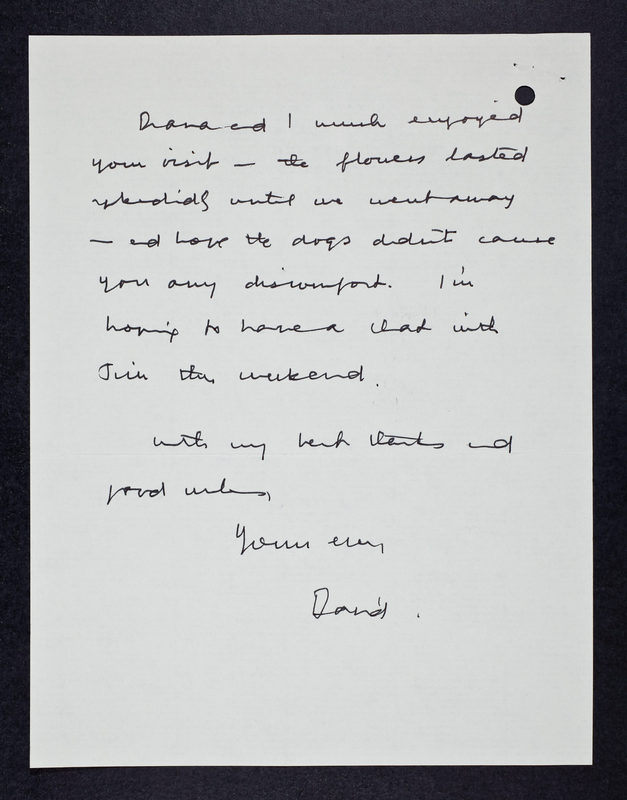 Diana and I much enjoyed
your visit — the flowers lasted
splendidly until we went away
— and hope the dogs didn't cause
you any discomfort. I'm
hoping to have a chat with
Jim this weekend.
With my best thanks and
good wishes,
Yours ever,
David.